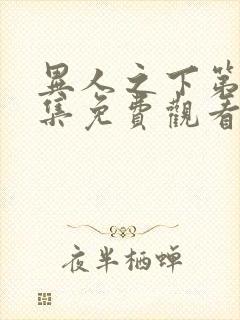 異人之下第
集免費觀看
夜半栖蝉